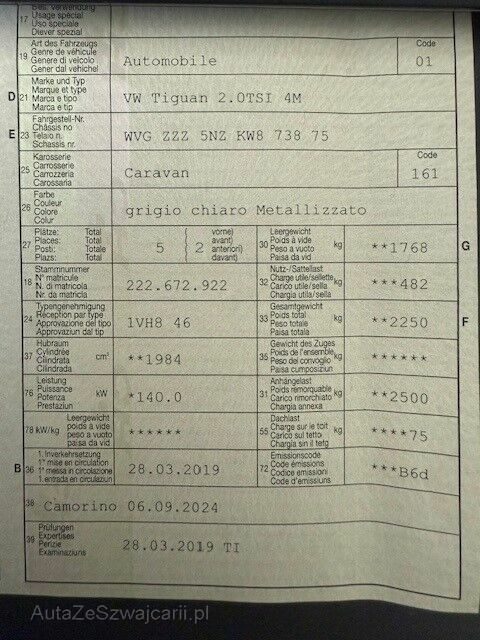 17
Bes. Verwendung
Usage spécial
Uso speciale
Diever spezial
19
Art des Fahrzeugs
Genre de véhicule
Genere di veicolo
Gener dal vehichel
Automobile
Code
01
D
21
Marke und Typ
Marque et type
Marca e tipo
Marca e tip
VW Tiguan 2.0TSI 4M
E
23
Fahrgestell-Nr.
Châssis no
Telaio n.
Schassis nr.
WVG ZZZ 5NZ KW8 738 75
25
Karosserie
Carrosserie
Carrozzeria
Carossaria
Caravan
Code
161
26
Farbe
Couleur
Colore
Colur
grigio chiaro Metallizzato
27
Plätze: Total
Places: Total
Posti: Totale
Plazs: Total
5
( vorne)
( avant)
( anteriori)
( davant)
2
30
Leergewicht
Poids à vide
Peso a vuoto
Paisa da vid
kg
**1768
G
18
Stammnummer
N° matricule
N. di matricola
Nr. da matricla
222.672.922
32
Nutz-/Sattellast
Charge utile/sellette
Carico utile/sella
Chargia utila/sella
kg
***482
24
Typengenehmigung
Réception par type
Approvazione del tipo
Approvaziun dal tip
1VH8 46
33
Gesamtgewicht
Poids total
Peso totale
Paisa totala
kg
**2250
F
37
Hubraum
Cylindrée
Cilindrata
Cilindrada
cm³
**1984
35
Gewicht des Zuges
Poids de l'ensemble
Peso del convoglio
Paisa cumposiziun
kg
******
76
Leistung
Puissance
Potenza
Prestaziun
kW
*140.0
31
Anhängelast
Poids remorquable
Carico rimorchiato
Chargia annexa
kg
**2500
78 kW/kg
Leergewicht
poids à vide
peso a vuoto
paisa da vid
******
55
Dachlast
Charge sur le toit
Carico sul tetto
Chargia sin il tetg
kg
****75
B
36
1. Inverkehrsetzung
1re mise en circulation
1a messa in circolazione
1. entrada en circulaziun
28.03.2019
72
Emissionscode
Code émissions
Codice emissioni
Code d'emissiuns
***B6d
38
Camorino 06.09.2024
39
Prüfungen
Expertises
Perizie
Examinaziuns
28.03.2019 TI
AutaZeSzwajcarii.pl